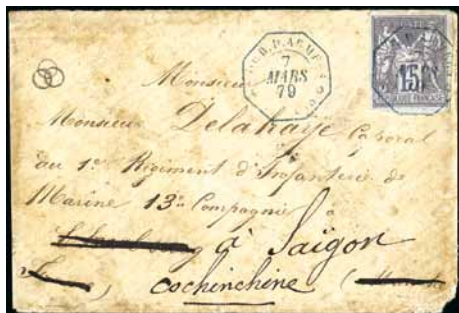 7
MARS
79
15
Monsieur
Monsieur Delahaye Caporal
au 1er Régiment d'Infanterie de
Marine 13e Compagnie à
à Saïgon
Cochinchine